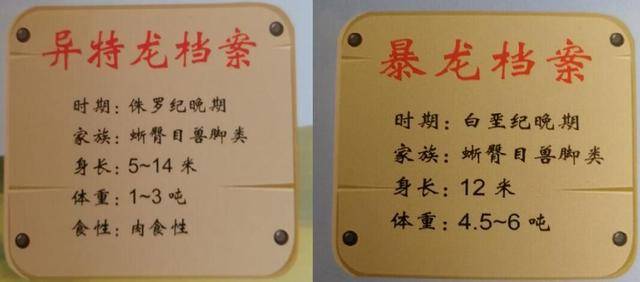 异特龙档案
时期：侏罗纪晚期
家族：蜥臀目兽脚类
身长：5~14 米
体重：1~3 吨
食性：肉食性
暴龙档案
时期：白垩纪晚期
家族：蜥臀目兽脚类
身长：12 米
体重：4.5~6 吨